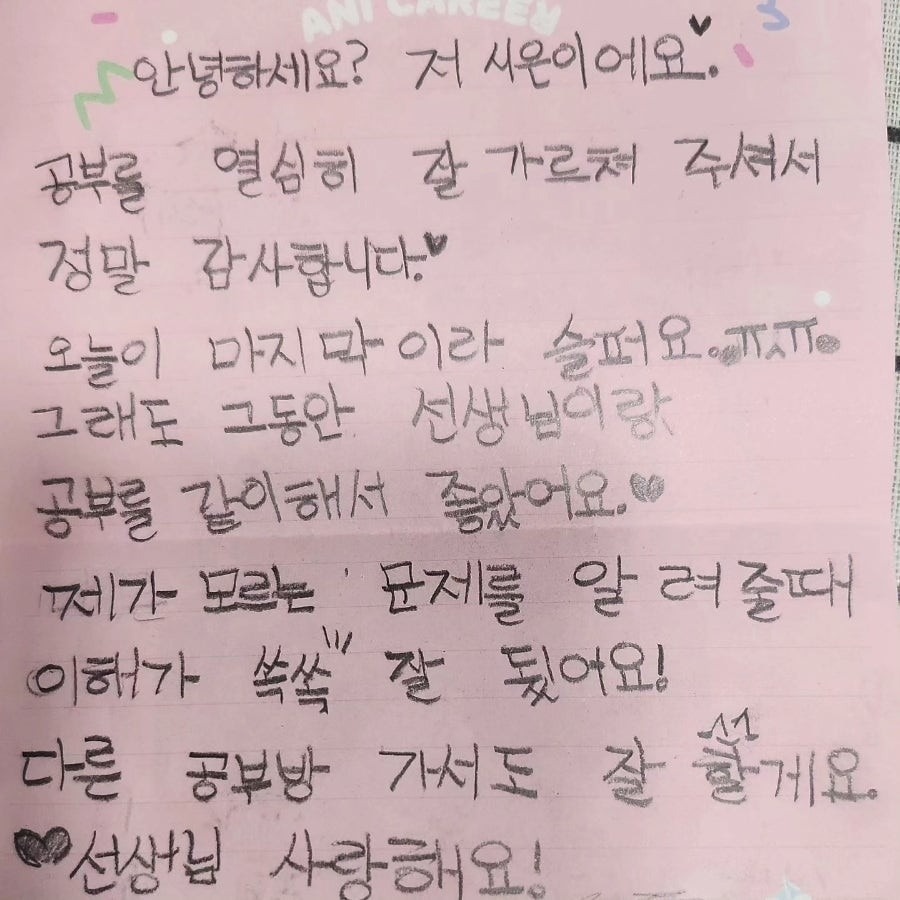 ANI CAREER
안녕하세요? 저 시온이에요.♥
공부를 열심히 잘 가르쳐 주셔서
정말 감사합니다.♥
오늘이 마지막이라 슬퍼요.ㅠㅠ
그래도 그동안 선생님이랑
공부를 같이해서 좋았어요.♥
제가 모르는 문제를 알려줄때
이해가 쏙쏙 잘 됬어요!
다른 공부방 가서도 잘 할게요.
♥선생님 사랑해요!